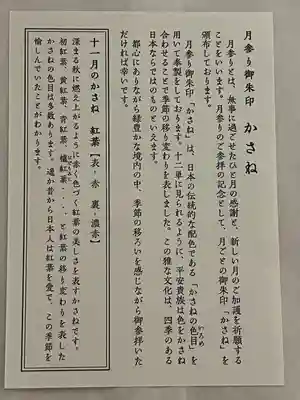 月参り御朱印 かさね
月参りとは、無事に過ごせたひと月の感謝と、新しい月のご加護を祈願する
ことをいいます。月参りのご参拝の記念として、月ごとの御朱印「かさね」を
頒布しております。
月参り御朱印「かさね」は、日本の伝統的な配色である「かさねの色目」を
いろめ
用いて奉製をしております。十二単に見られるように、平安貴族は色をかさね
合わせることで季節の移り変わりを表しました。この雅な文化は、四季のある
日本ならではのものといえます。
都心にありながら緑豊かな境内の中、季節の移ろいを感じながら御参拝いた
だければ幸いです。
十一月のかさね 紅葉【表・赤 裏・濃赤】
深まる秋に燃え上がるように赤く色づく紅葉の美しさを表すかさねです。
初紅葉、黄紅葉、青紅葉、櫨紅葉、、、、と紅葉の移り変わりを表した
かさねの色目は多数あります。遥か昔から日本人は紅葉を愛で、この季節を
愉しんでいたことがわかります。